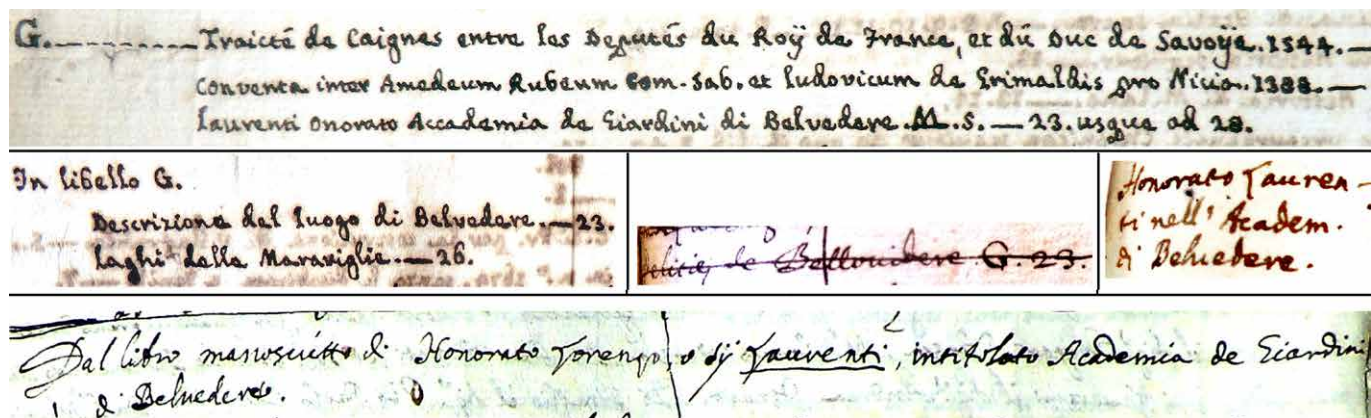 G. Traicté de Caignes entre les Deputés du Roÿ de France, et dú Duc de Savoÿe. 1544.—
Conventa inter Amedeum Rubeum Com. Sab. et Ludovicum de Grimaldis pro Nicia. 1388.—
Laurenti Onorato Accademia de Giardini di Belvedere. M. S. — 23. usque ad 28.
In libello G.
Descrizione del luogo di Belvedere. — 23.
Laghi delle Maraviglie. — 26.
de Bellovidere G 23.
Honorato Lauren-
ti nell' Academ.
di Belvedere.
Dal libro manoscritto di Honorato Lorenzo, o sij Laurenti, intitolato Academia de Giardini
di Belvedere.